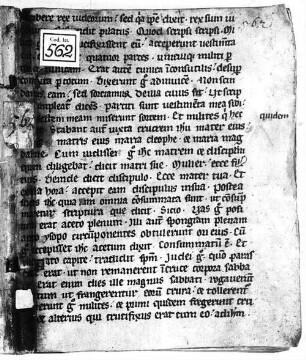 scribere rex iudeorum. sed qa ipe dixit. rex sum iu
Rndit pilatus. Quod scripsi scripsi.
Cod. lat.
562
562
crucifixissent eum. acceperunt vestimta
quatuor partes. unicuiqi militi p
tunicam. Erat aut tunica inconsutilis. desup
contexta p totum. Dixerunt g adinuice. Non scin
dam. eam. sed sortiamur. de illa cuius sit. Ut scrip
impleat dices. partiti sunt vestimeta mea sibi.
vestem meam miserunt sortem. Et milites q hec
quidem
Stabant aut iuxta crucem ihu mater eius
matris eius maria cleophe. et maria mag
dalene. Cum vidisset g ihc matrem et discipulm
quem diligebat. dicit matri sue. Mulier. ecce fili
eius. Deinde dicit discipulo. Ecce mater tua. Et
illa hora accepit eam discipulus in sua. Postea
ihc qa iam omnia consummata sunt. ut consum
maretur scriptura que dicit. Sicio. Vas g posi
erat aceto plenum. Illi aut spongiam plenam
ysopo circumponentes obtulerunt ori eius. Cu
accepisset ihc acetum dixit. Consummatum e. Et
capite. tradidit spm. Iudei g. quo paras
erat. ut non remanerent in cruce corpora sabba
erat enim dies ille magnus sabbati. rogaverut
ut frangerentur eoru crura. et tollerent
venerunt g milites. et primi quidem fregerunt cru
et alterius qui crucifixus erat cum eo. ad ihm